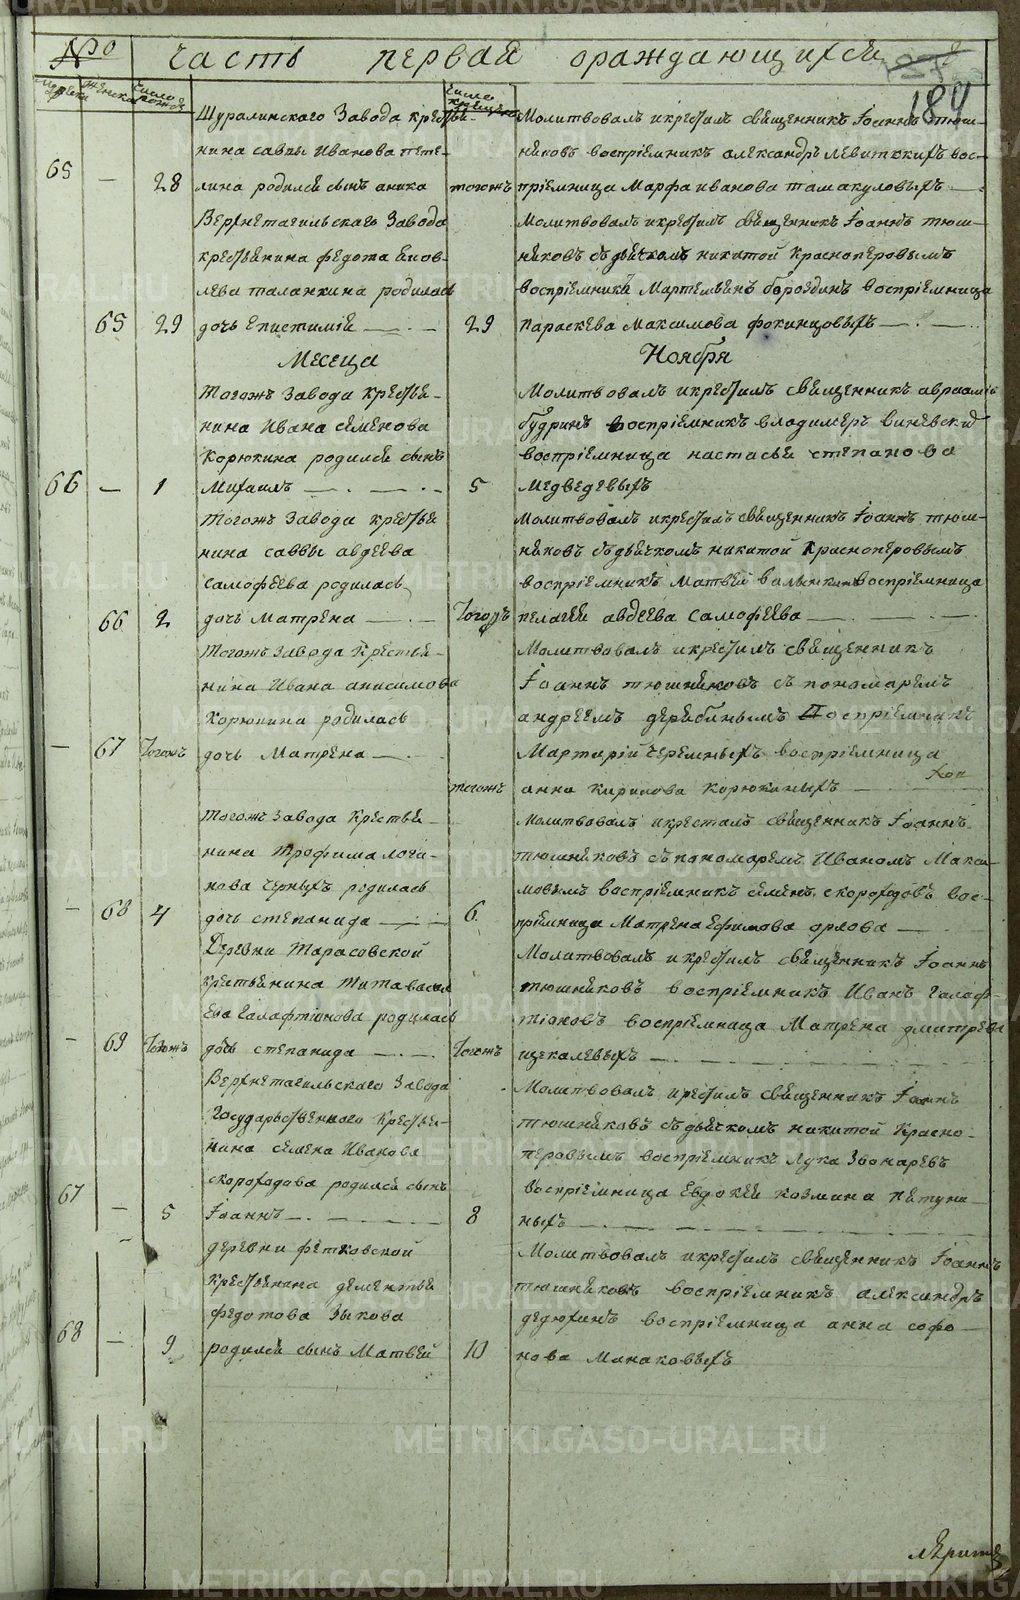 METRIKI.GASO-URAL.RU
№ часть первая ораждающихся
184
мужеска женска число рожд число крещен
Шуралинскаго Завода крестья-
нина саввы Иванова пете-
65 — 28 лина родился сынъ аника тогожъ
Молитвовалъ икрестилъ священникъ Іоаннъ тюш-
никовъ воспріемникъ александръ левитскихъ вос-
пріемница Марфа иванова тамакуловыхъ
Верхнетагильскаго Завода
крестьянина федота яков-
лева таланкина родилась
65 29 дочь Епистимія 29
молитвовалъ икрестилъ священникъ Іоаннъ тюш-
никовъ съдьячкомъ никитой Красноперовымъ
воспріемникъ Мартемьянъ бороздинъ воспріемница
параскева Максимова фокинцовыхъ
Месеца Ноября
тогожъ Завода Крестья-
нина Ивана семенова
Корюкина родился сынъ
66 — 1 Михаилъ 5
Молитвовалъ икрестилъ священникъ авраамій
будринъ воспріемникъ владимеръ виневской
воспріемница настасья степанова
медведевыхъ
тогожъ Завода крестья
нина саввы авдеева
самофеева родилась
66 2 дочь матрена тогожъ
молитвовалъ икрестилъ священникъ Іоаннъ тюш-
никовъ съдьячкомъ никитой Красноперовымъ
воспріемникъ Матвей волынкинъ воспріемница
пелагея авдеева самофеева
тогожъ Завода Крестья-
нина Ивана анисимова
Корюкина родилась
— 67 тогожъ дочь Матрена
тогожъ
Молитвовалъ икрестилъ священникъ
Іоаннъ тюшниковъ съ пономаремъ
андреемъ дерябинымъ воспріемникъ
Мартирій черемныхъ воспріемница
анна кирилова корюкиныхъ
тогожъ Завода Крестья-
нина трофима логи-
нова черныхъ родилась
— 68 4 дочь степанида 6
молитвовалъ икрестилъ священникъ Іоаннъ
тюшниковъ съпономаремъ Иваномъ Макси-
мовымъ воспріемникъ семенъ скороходовъ вос-
пріемница Матрена Ефимова орлова
Деревни Тарасовской
крестьянина тита васил
Ева Галафтионова родилась
— 69 тогожъ дочь степанида тогожъ
Молитвовалъ икрестилъ священникъ Іоаннъ
тюшниковъ воспріемникъ Иванъ Галаф-
тіоновъ воспріемница Матрена дмитрева
щекалевыхъ
Верхнетагильскаго Завода
государьственнаго Крестья-
нина семена Иванова
скороходова родился сынъ
67 — 5 Іоаннъ 8
Молитвовалъ икрестилъ священникъ Іоаннъ
тюшниковъ съдьячкомъ никитой Красно-
перовымъ воспріемникъ Лука Зонаревъ
воспріемница Евдокея козмина петуни
ныхъ
деревни фетковской
крестьянина дементья
федотова Зыкова
68 — 9 родился сынъ Матвей 10
Молитвовалъ икрестилъ священникъ Іоаннъ
тюшниковъ воспріемникъ александръ
дедюхинъ воспріемница анна софо
нова Манаковыхъ